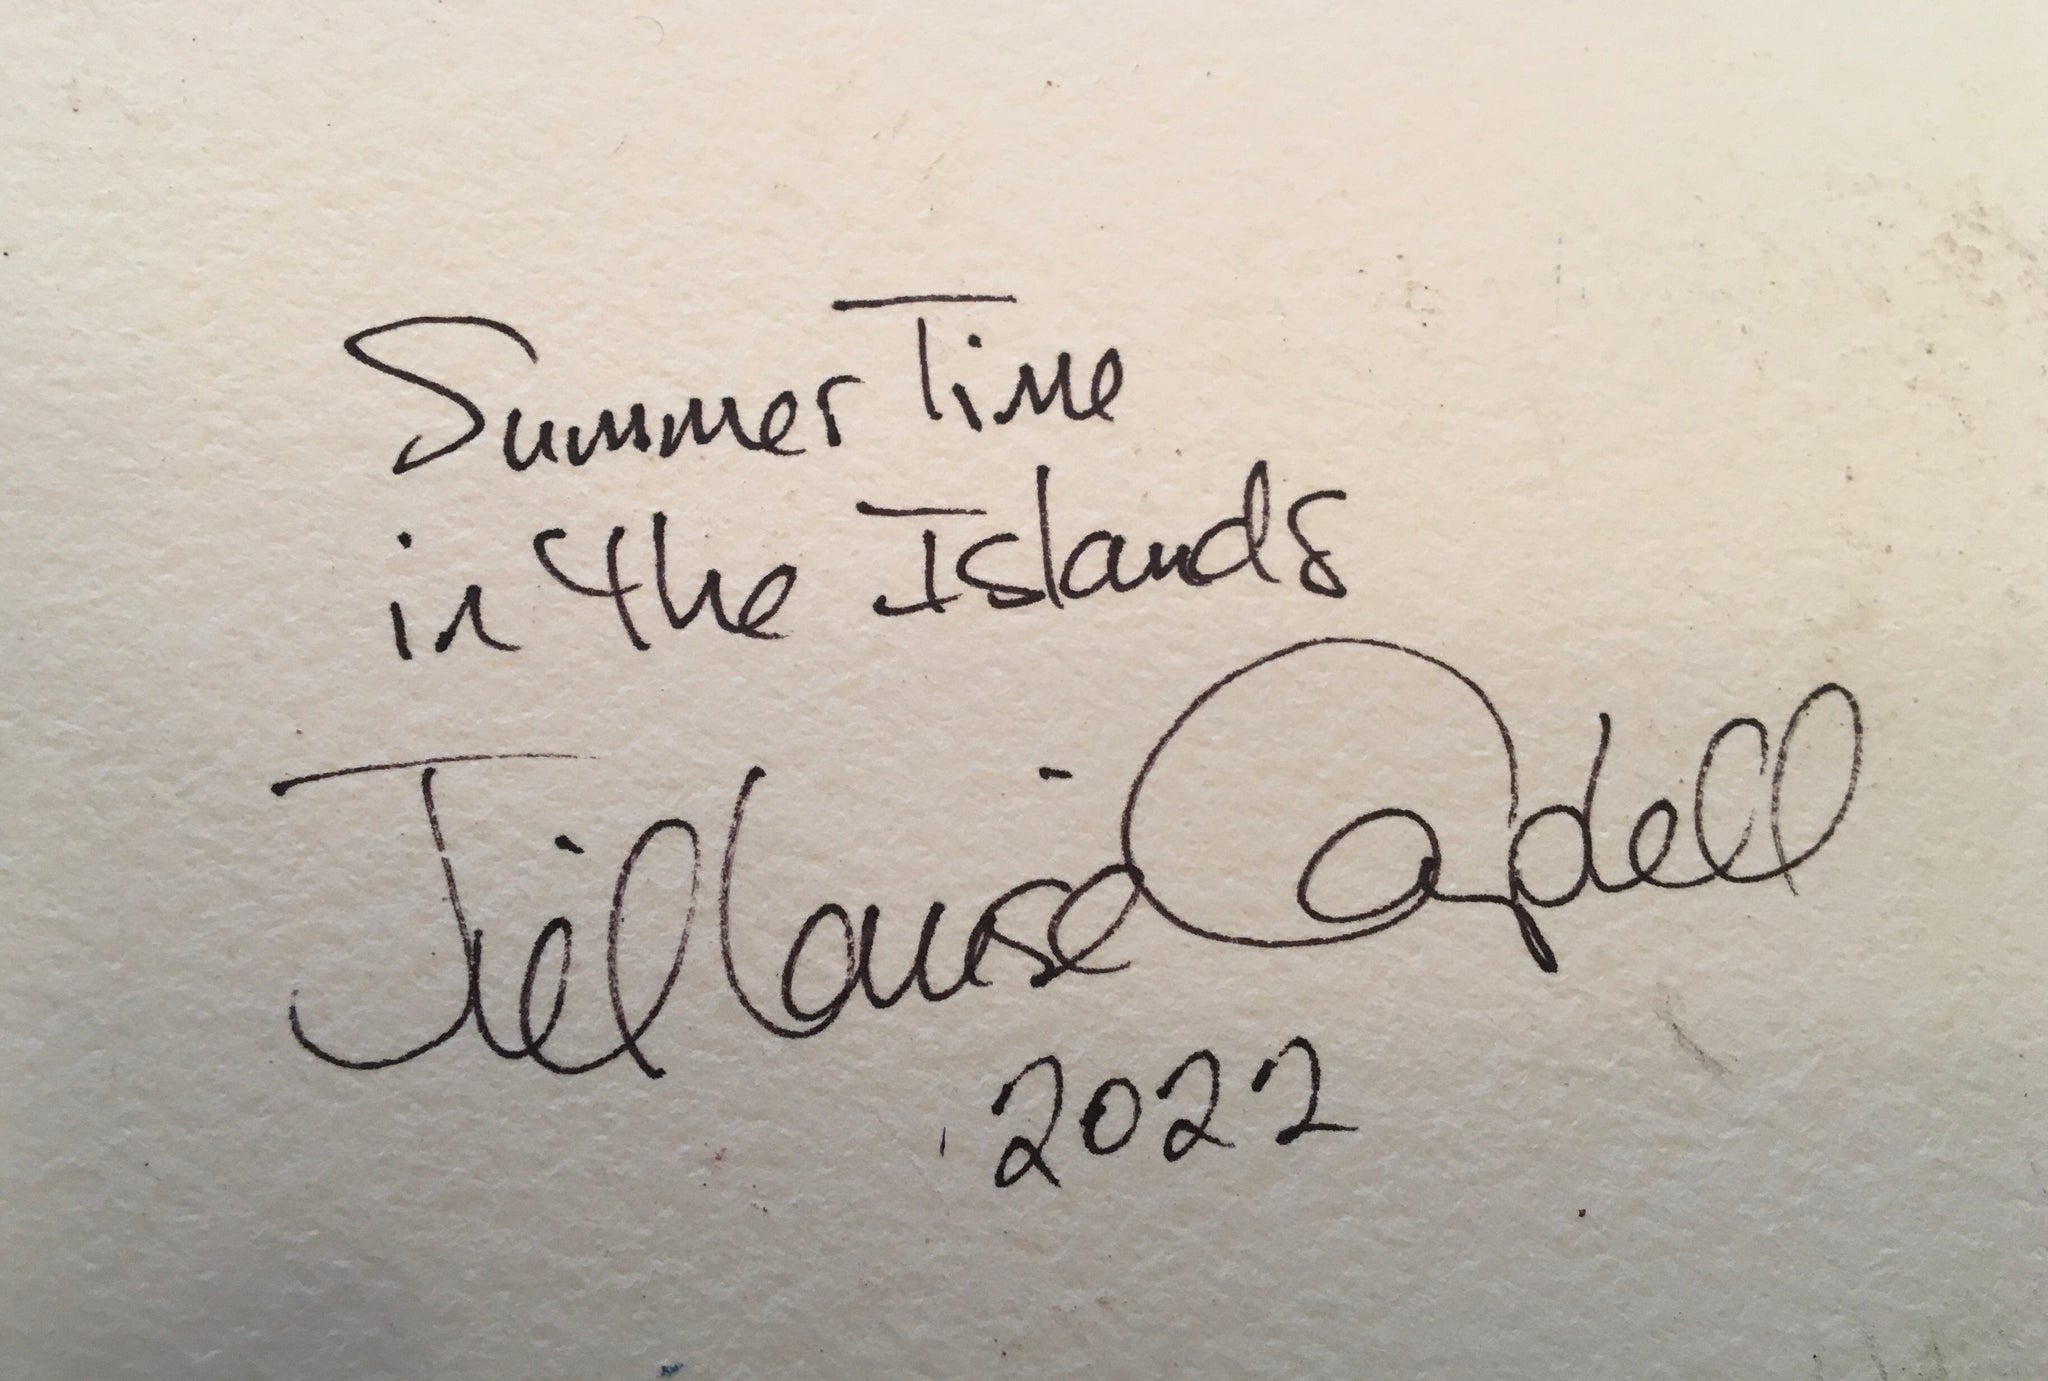 Summer Time
in the Islands
Jill Louise
2022